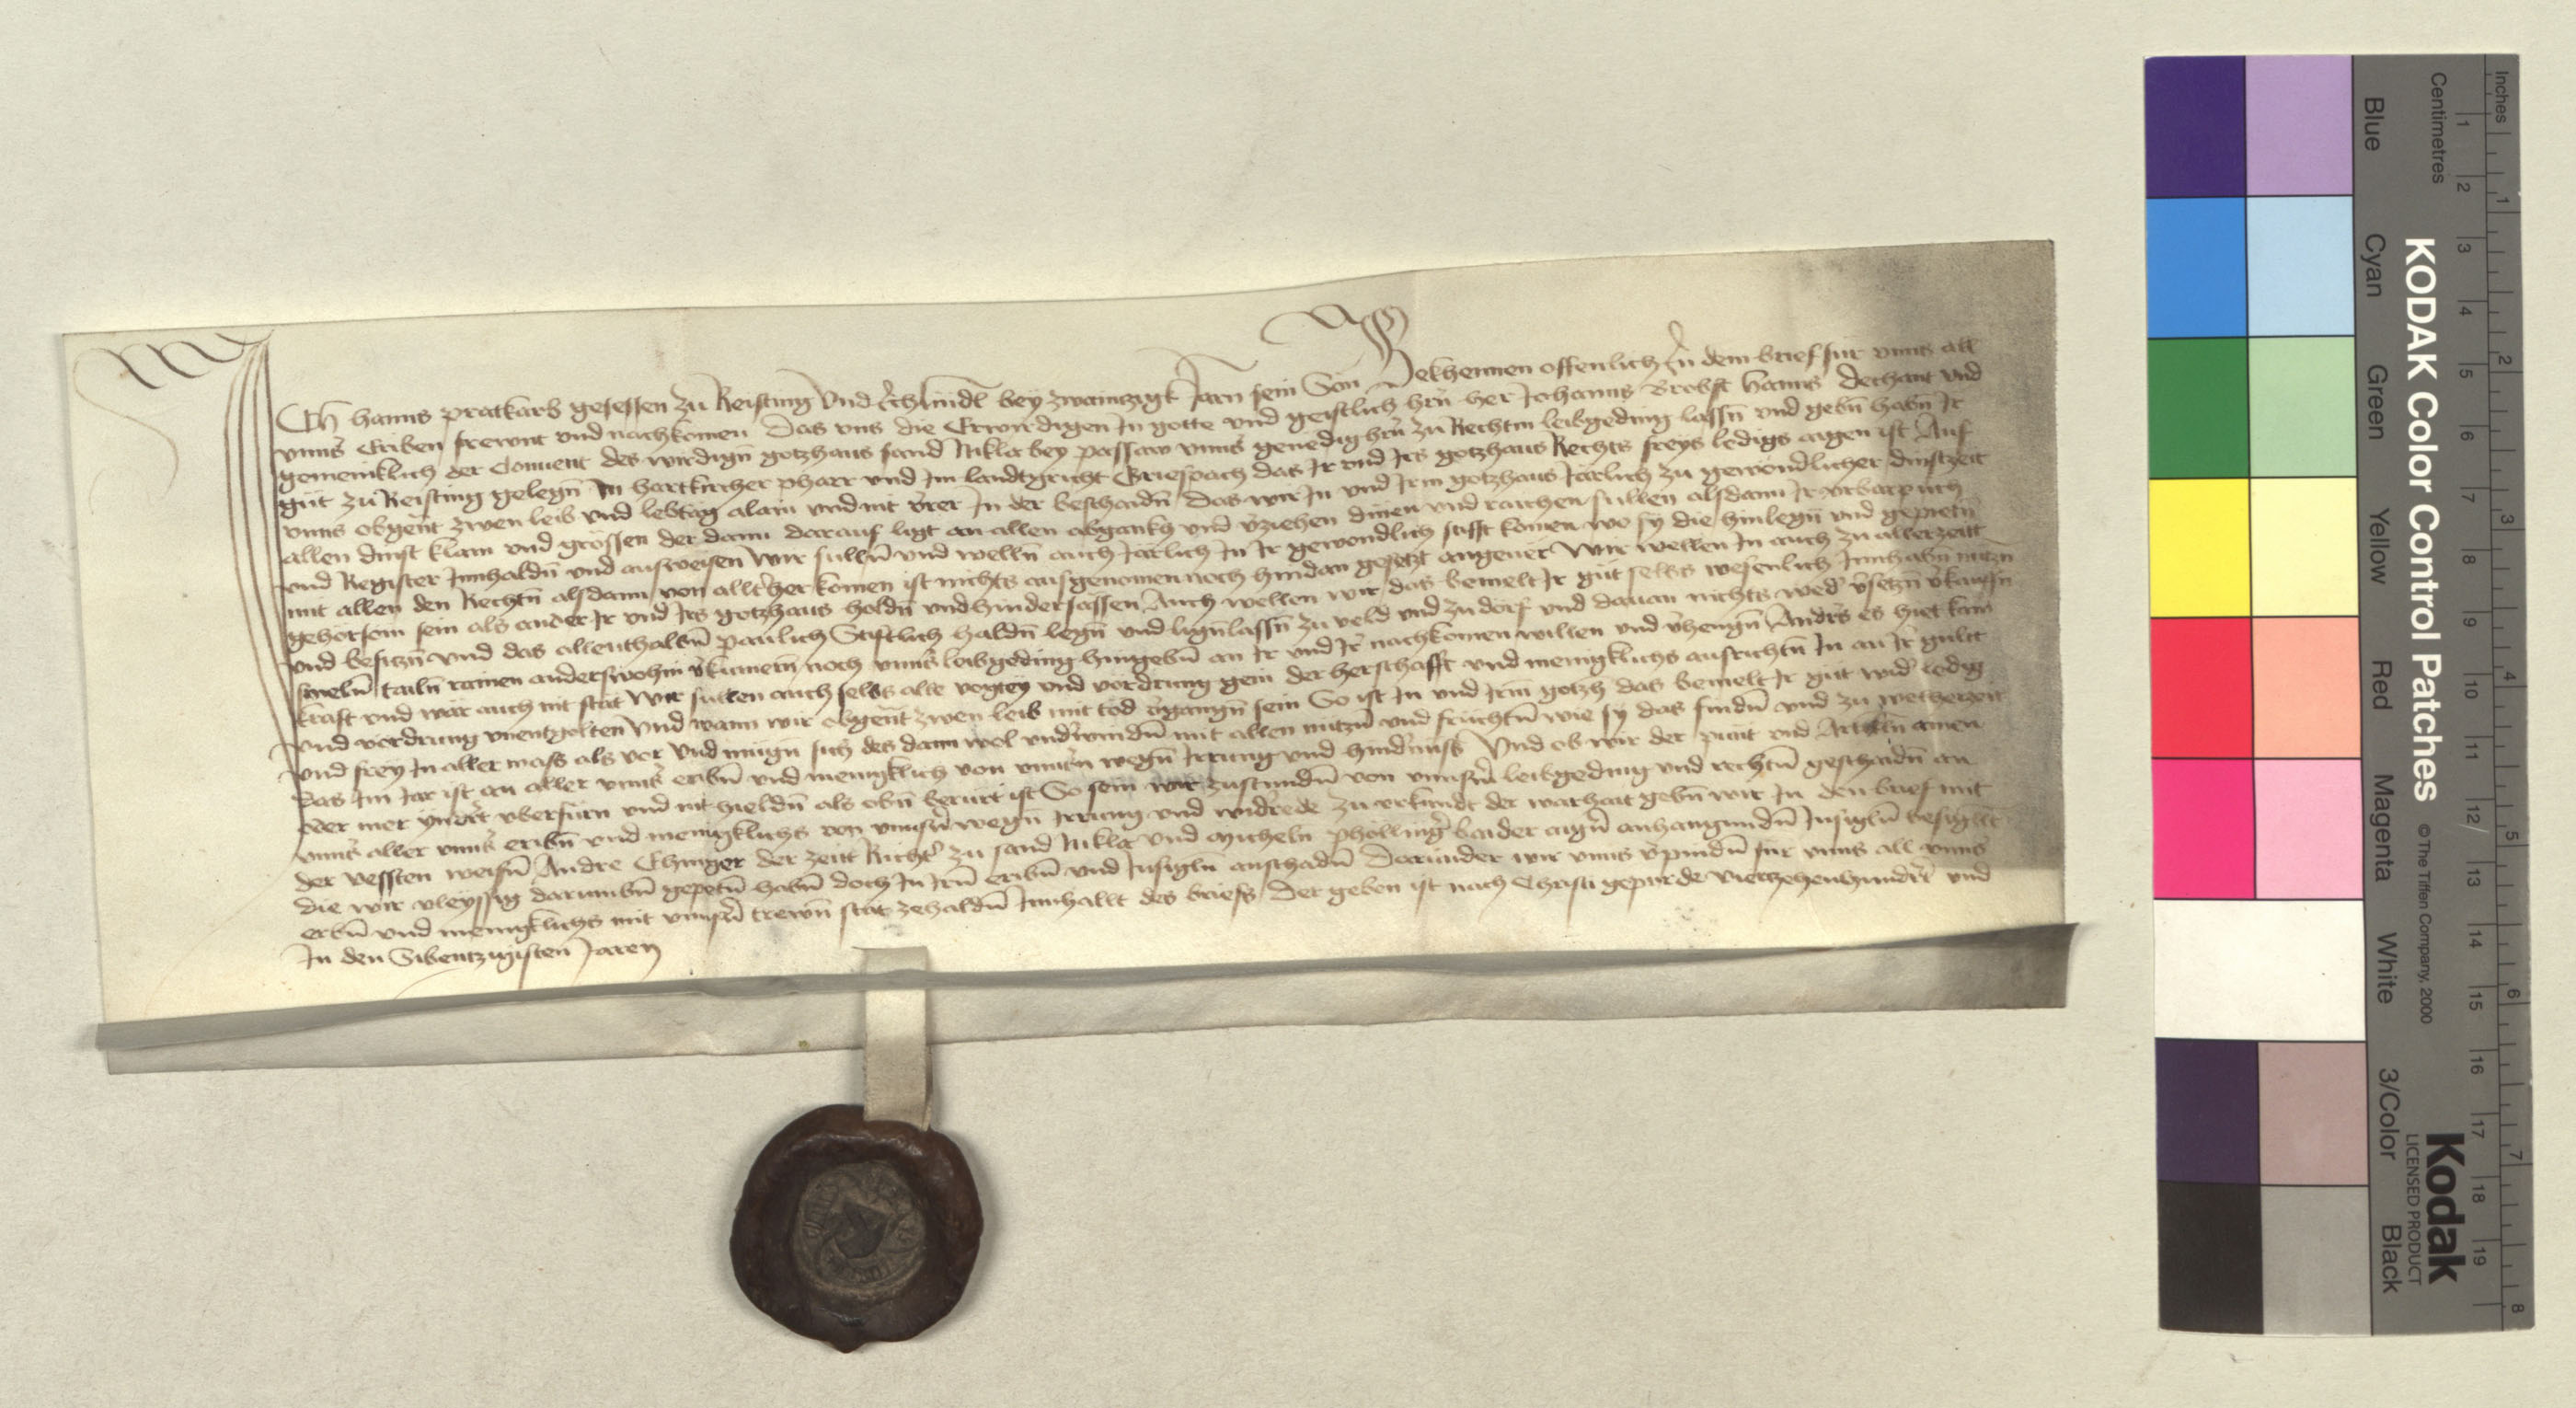 Ich hanns pratkarb gesessen zu Reisting Vnd lindl bey zwainzigk Jarn sein Son Bekhennen offenlich In dem brief für vnns all
vnns Eriben frewnt vnd nachkomen Das vns die Erwirdigen In gotte vnd geistlich hrn her Johanns Brobst hanns dechant vnd
gemeinklich der Conuent des wirdign gotzhaus sand Nikla bey passaw vnns genedig hrn zu Rechtm leibgeding lassn vnd gebn habn Ir
gut zu Reisting gelegn In hartkircher pharr vnd Im landtgricht Griespach das Ir vnd Irs gotzhaus Rechts freys ledigs aigen ist Auf
vnns obgent zwen leib vnd lebtag alain vnd nit vrer In der beschaidn Das wir In vnd Irm gotzhaus Järlich zu gewondlicher dinstzeit
allen dinst klain vnd grossen der dann darauf ligt an allen abgankh vnd vziehen dinen vnd raichen sullen alsdann Ir vrbarpuch
vnd Register Innhaldn vnd ausweisen Wir sullen vnd welln auch Järlich In Ir gewondlich stifft komen wo sy die hinlegn vnd gepietn
mit allen den Rechtn alsdann von allther komen ist nichts ausgenomen noch hindan gesetzt angeuer Wir wellen In auch zu allerzeitt
gehorsom sein als ander Ir vnd Irs gotzhaus holdn vnd hindersassen Auch wellen wir das bemelt Ir gut selbs wesenlich Innhabn nutzn
vnd besitzn vnd das allenthalbn paulich Stiftlich haldn legn vnd lign lassn zu veld vnd zu dorf vnd dauan nichts wed vsetzn vkauffn
smeln tailn rainen anderswohin vkumern noch vnns leibgeding hingebn an Ir vnd Ir nachkomen willen vnd vhengn Anders es hiet kain
kraft vnd wär auch nit stät Wir sullen auch selbs alle vogtey vnd vordrung gein der herschafft vnd menigklichs ausrichtn In an Ir gullt
vnd vordrung vnentgolten Vnd wann wir obgent zwen leib mit tod vgangn sein So ist In vnd Irm gotzh das bemelt Ir gut wid ledig
Vnd frey In aller mass als vor Vnd mugn sich des dann wol vnderwindn mit allen nutzn vnd früchtn wie sy das findn vnd zu welherzeit
das Im Jar ist an aller vnns eribn vnd menigklich von vnnsrn wegn Irrung vnd hindrnuss Vnd ob wir der punt vnd Artikln ainen
oder mer yndrt vberfurn vnd nit hieldn als obn berurt ist So sein wir zustundn von vnnsrm leibgeding vnd rechtn geschaidn an
vnns aller vnns eribn vnd menigklichs von vnnsrn wegn Irrung vnd widrede Zu vrkundt der warhait gebn wir In den brief mit
der vessten weisn Andre Ehinger der zeitt Richter zu sand Nikla vnd Micheln phollinger baider aign anhangundn Insigln besigllt
die wir vleyssig darumbn gepetn habn doch In Irn eribn vnd Insigln anschadn Darunder wir vnns vpindn für vnns all vnns
eribn vnd menigklichs mit vnnsrn trewn stät zehaldn Innhallt des briefs Der geben ist nach Christi gepurde Vierzehenhundrt vnd
In den Sibentzigisten Jaren
Inches
Centimetres
KODAK Color Control Patches
© The Tiffen Company, 2000
Kodak
LICENSED PRODUCT
Blue
Cyan
Green
Yellow
Red
Magenta
White
3/Color
Black
1 2 3 4 5 6 7 8 9 10 11 12 13 14 15 16 17 18 19
1 2 3 4 5 6 7 8